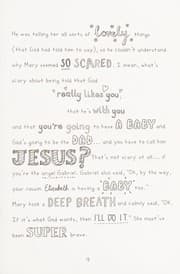 He was telling her all sorts of lovely things
(that God had told him to say), so he couldn't understand
why Mary seemed SO SCARED. I mean, what's
scary about being told that God
"really likes you",
that he's with you
and that you're going to have A BABY and
God's going to be the DAD... and you have to call him
JESUS? That's not scary at all... if
you're the angel Gabriel. Gabriel also said, "Oh, by the way,
your cousin Elizabeth is having a BABY too."
Mary took a DEEP BREATH and calmly said, "OK.
If it's what God wants, then I'LL DO IT." She must've
been SUPER brave.